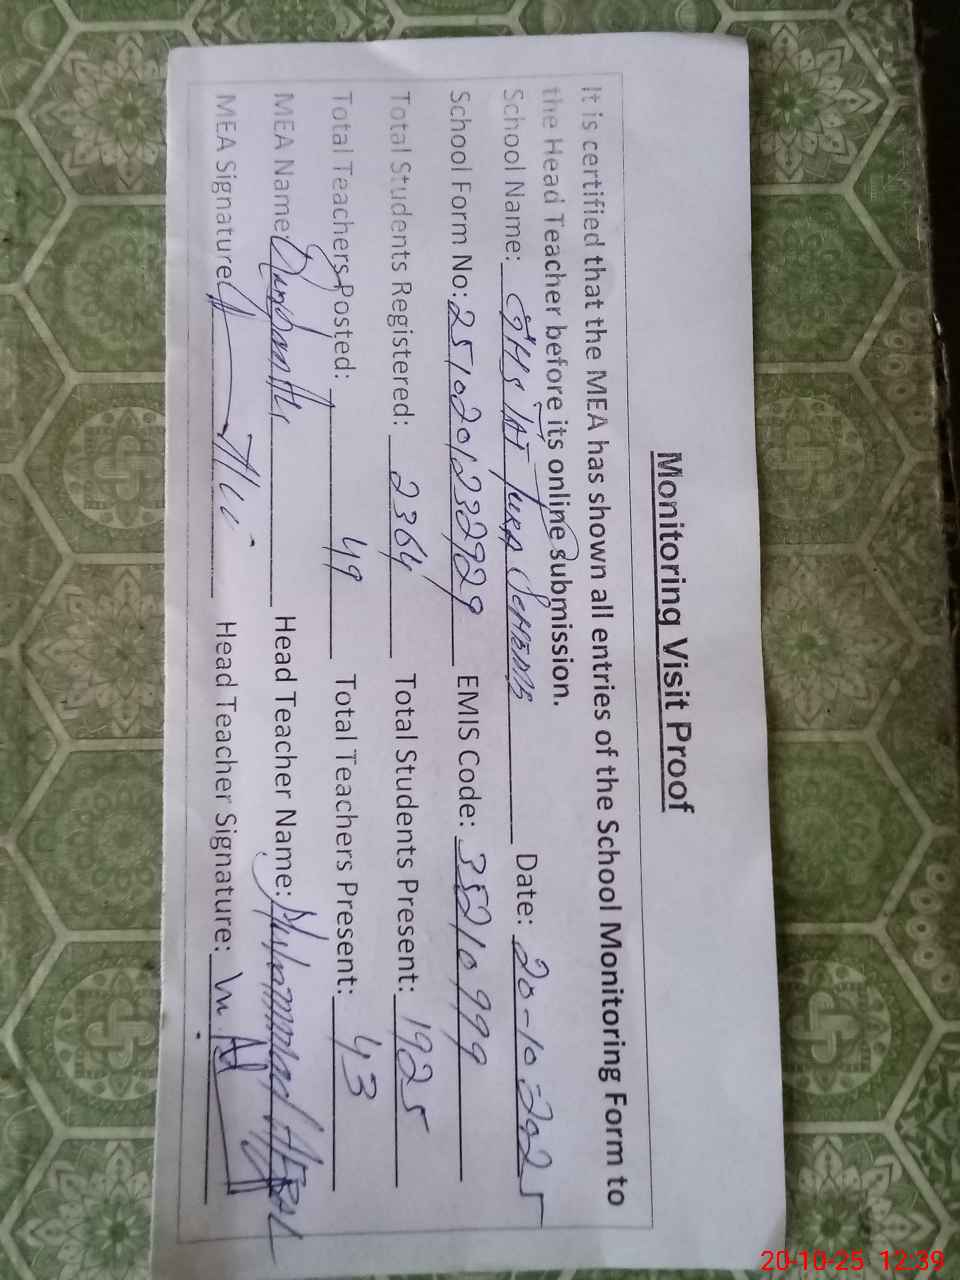 Monitoring Visit Proof
It is certified that the MEA has shown all entries of the School Monitoring Form to
the Head Teacher before its online submission.
School Name: GHS TAJ PURA SCHEME Date: 20-10-2025
School Form No: 2510201232929 EMIS Code: 35210999
Total Students Registered: 2364 Total Students Present: 1925
Total Teachers Posted: 49 Total Teachers Present: 43
MEA Name: Head Teacher Name: Muhammad
MEA Signature: Head Teacher Signature:
20-10-25 12:39